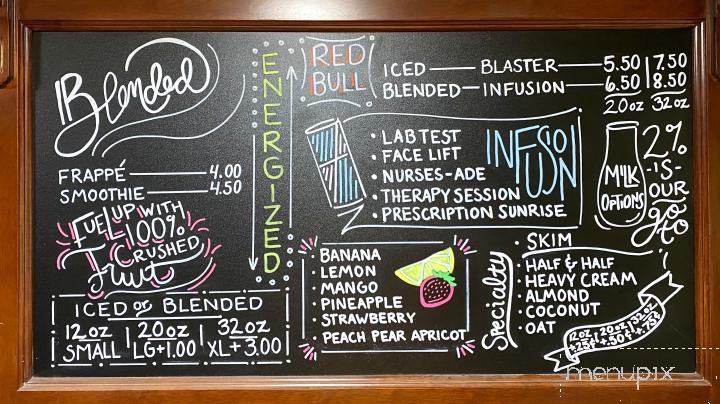 Blended
FRAPPÉ 4.00
SMOOTHIE 4.50
FUEL UP WITH
100%
CRUSHED
Fruit
ICED or BLENDED
12oz | 20oz | 32oz
SMALL | LG+1.00 | XL+3.00
ENERGIZED
RED
BULL
ICED — BLASTER — 5.50 | 7.50
BLENDED — INFUSION — 6.50 | 8.50
20oz 32oz
• LAB TEST
• FACE LIFT
• NURSES-ADE
• THERAPY SESSION
• PRESCRIPTION SUNRISE
INFUSION
BANANA
LEMON
MANGO
PINEAPPLE
STRAWBERRY
PEACH PEAR APRICOT
MILK
OPTIONS
2%
-'IS-
OUR
go
to
Specialty
• SKIM
• HALF & HALF
• HEAVY CREAM
• ALMOND
• COCONUT
• OAT
12oz | 20oz | 32oz
+.25¢ | +.50¢ | +.75¢
menupix